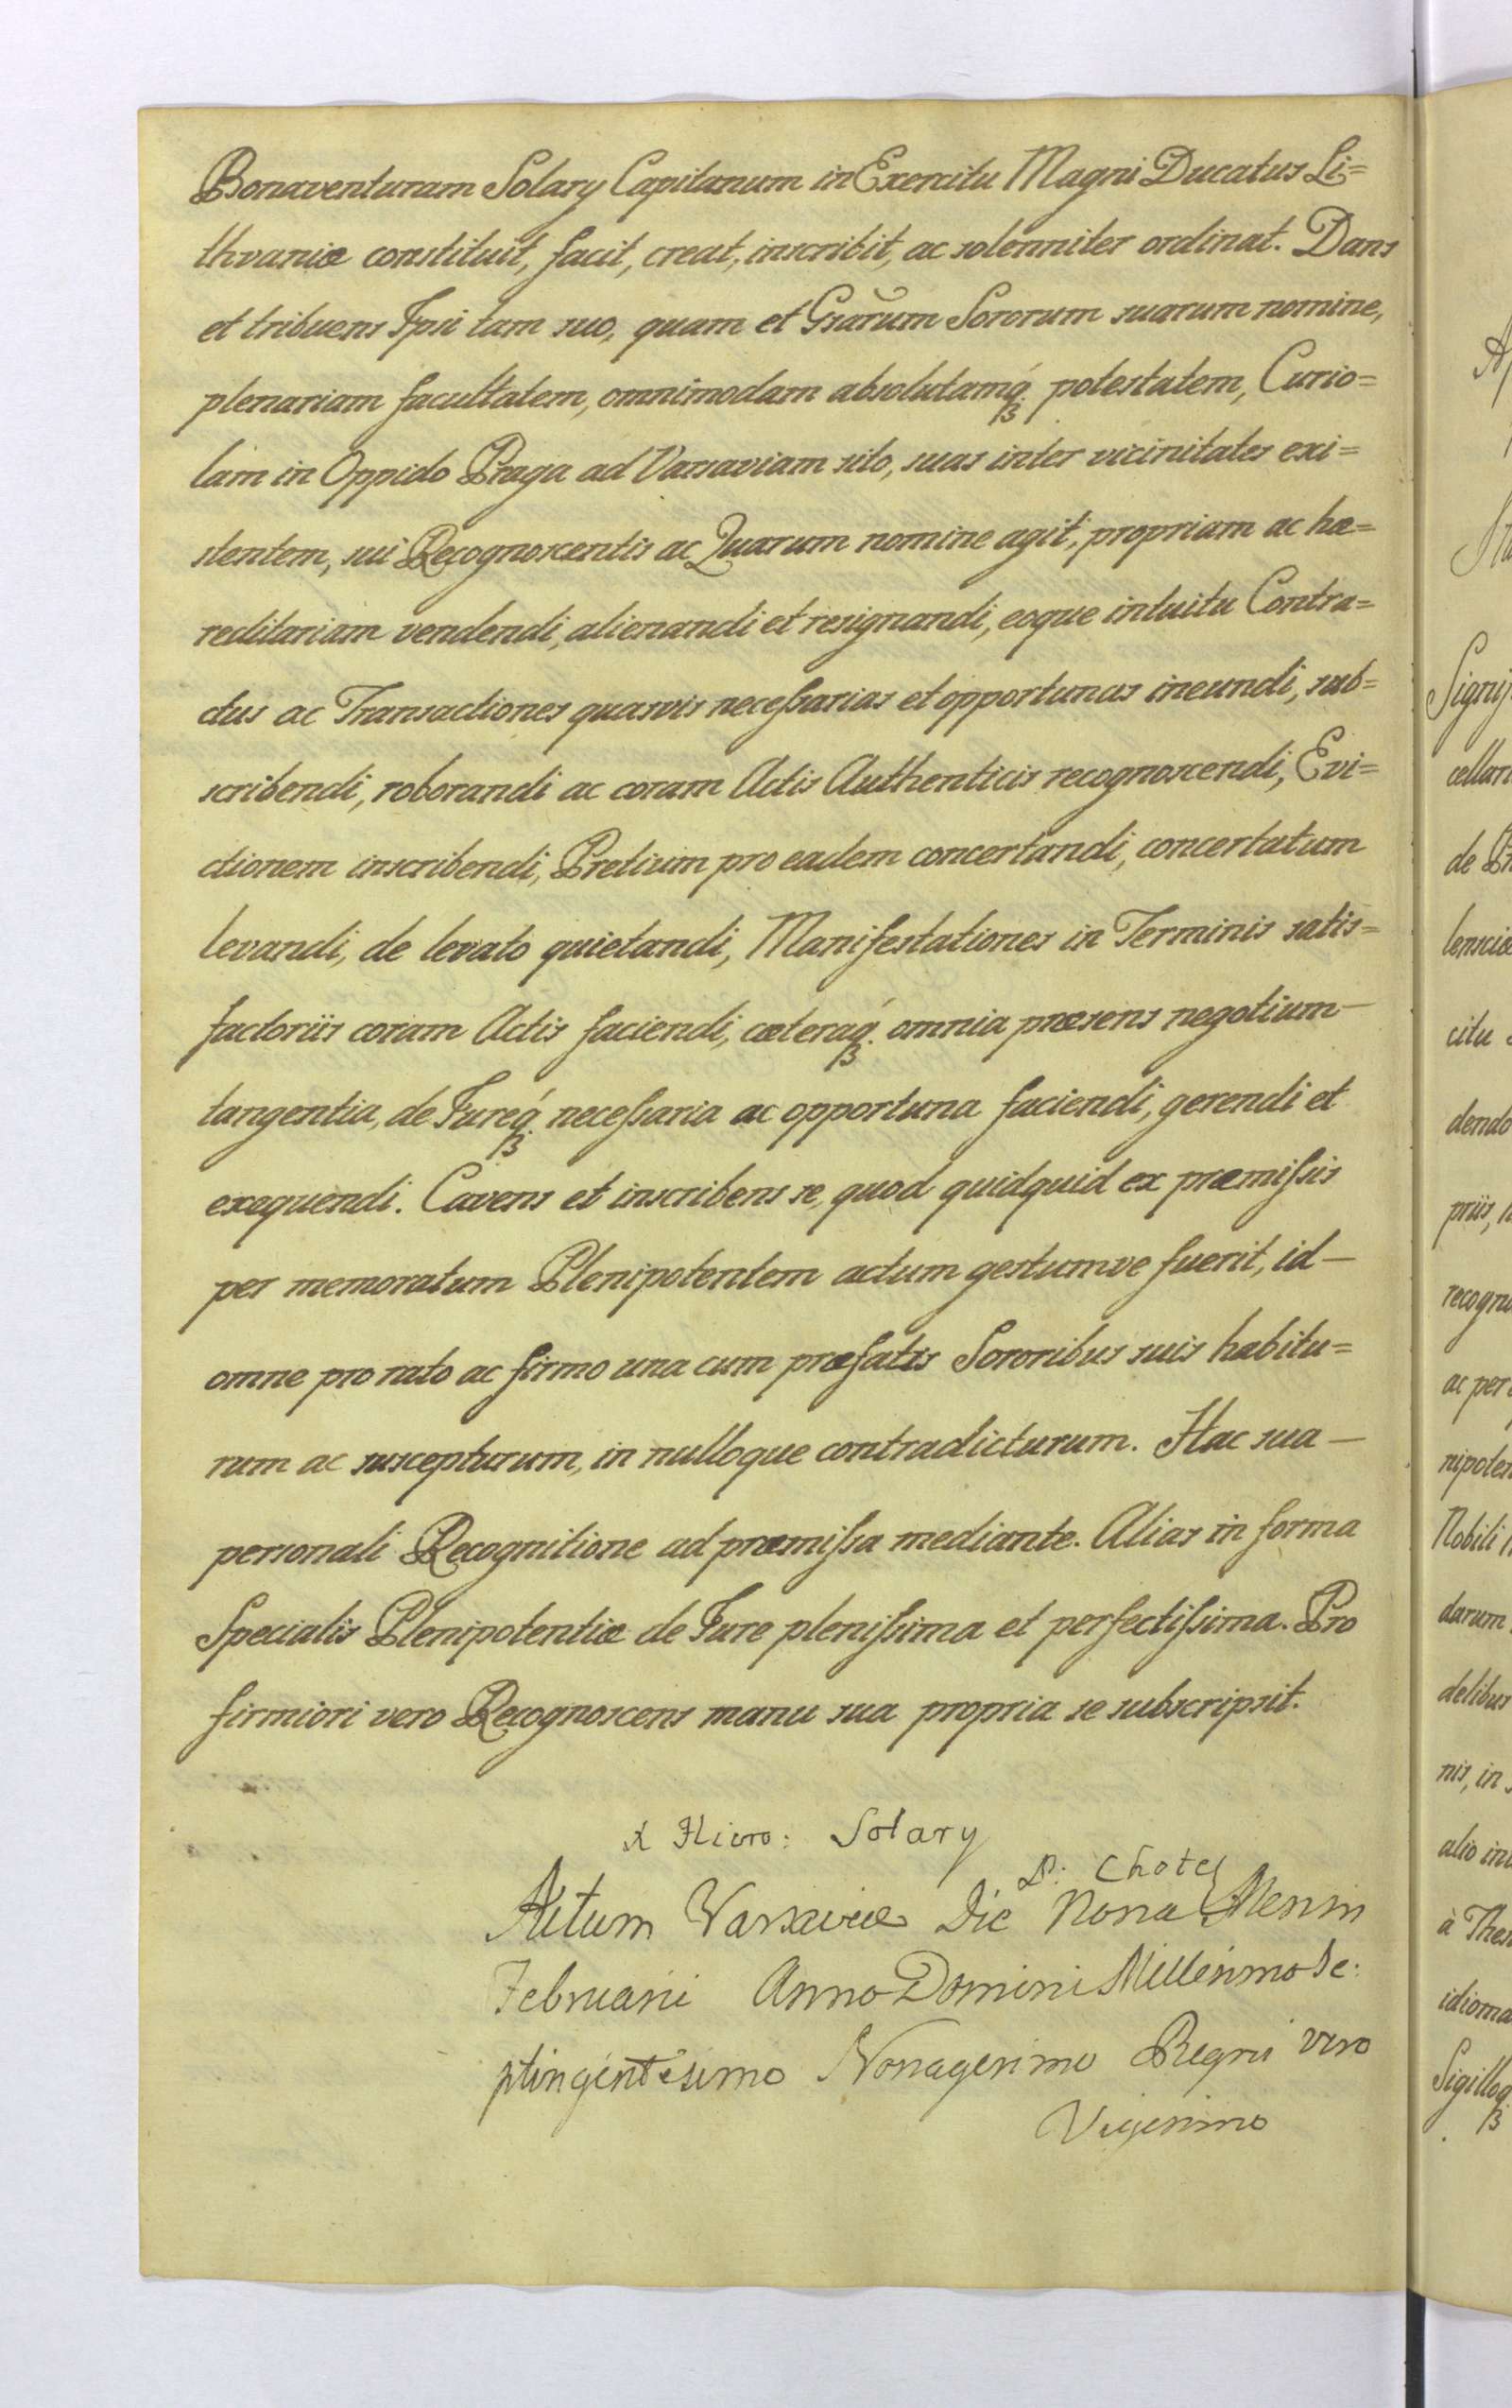 Bonaventuram Solary Capitanum in Exercitu Magni Ducatus Li=
thvaniæ constituit, facit, creat, inscribit, ac solenniter ordinat. Dans
et tribuens Ipsi tam suo, quam et Gnarum Sororum suarum nomine,
plenariam facultatem, omnimodam absolutamq́ꝫ potestatem, Curio=
lam in Oppido Praga ad Varsaviam sito, suas inter vicinitates exi=
stentem, sui Recognoscentis ac Quarum nomine agit, propriam ac hæ=
reditariam vendendi, alienandi et resignandi, eoque intuitu Contra=
ctus ac Transactiones quasvis neceſsarias et opportunas ineundi, sub=
scribendi, roborandi ac coram Actis Authenticis recognoscendi, Evi=
ctionem inscribendi, Pretium pro eadem concertandi, concertatum
levandi, de levato quietandi, Manifestationes in Terminis satis=
factoriis coram Actis faciendi, cæteraq́ꝫ omnia præsens negotium—
tangentia, de Jureq́ꝫ neceſsaria ac opportuna faciendi, gerendi et
exequendi. Cavens et inscribens se, quod quidquid ex præmiſsis
per memoratum Plenipotentem actum gestumve fuerit, id—
omne pro rato ac firmo una cum præfatis Sororibus suis habitu=
rum ac suscepturum, in nulloque contradicturum. Hac sua—
personali Recognitione ad præmiſsa mediante. Alias in forma
Specialis Plenipotentiæ de Jure pleniſsima et perfectiſsima. Pro
firmiori vero Recognoscens manu sua propria se subscripsit.
X Hiero: Solary
Chotey
Actum Varsaviæ Die Nona Mensis
Februarii Anno Domini Millesimo Se:
ptingentesimo Nonagesimo Regni vero
Vigesimo